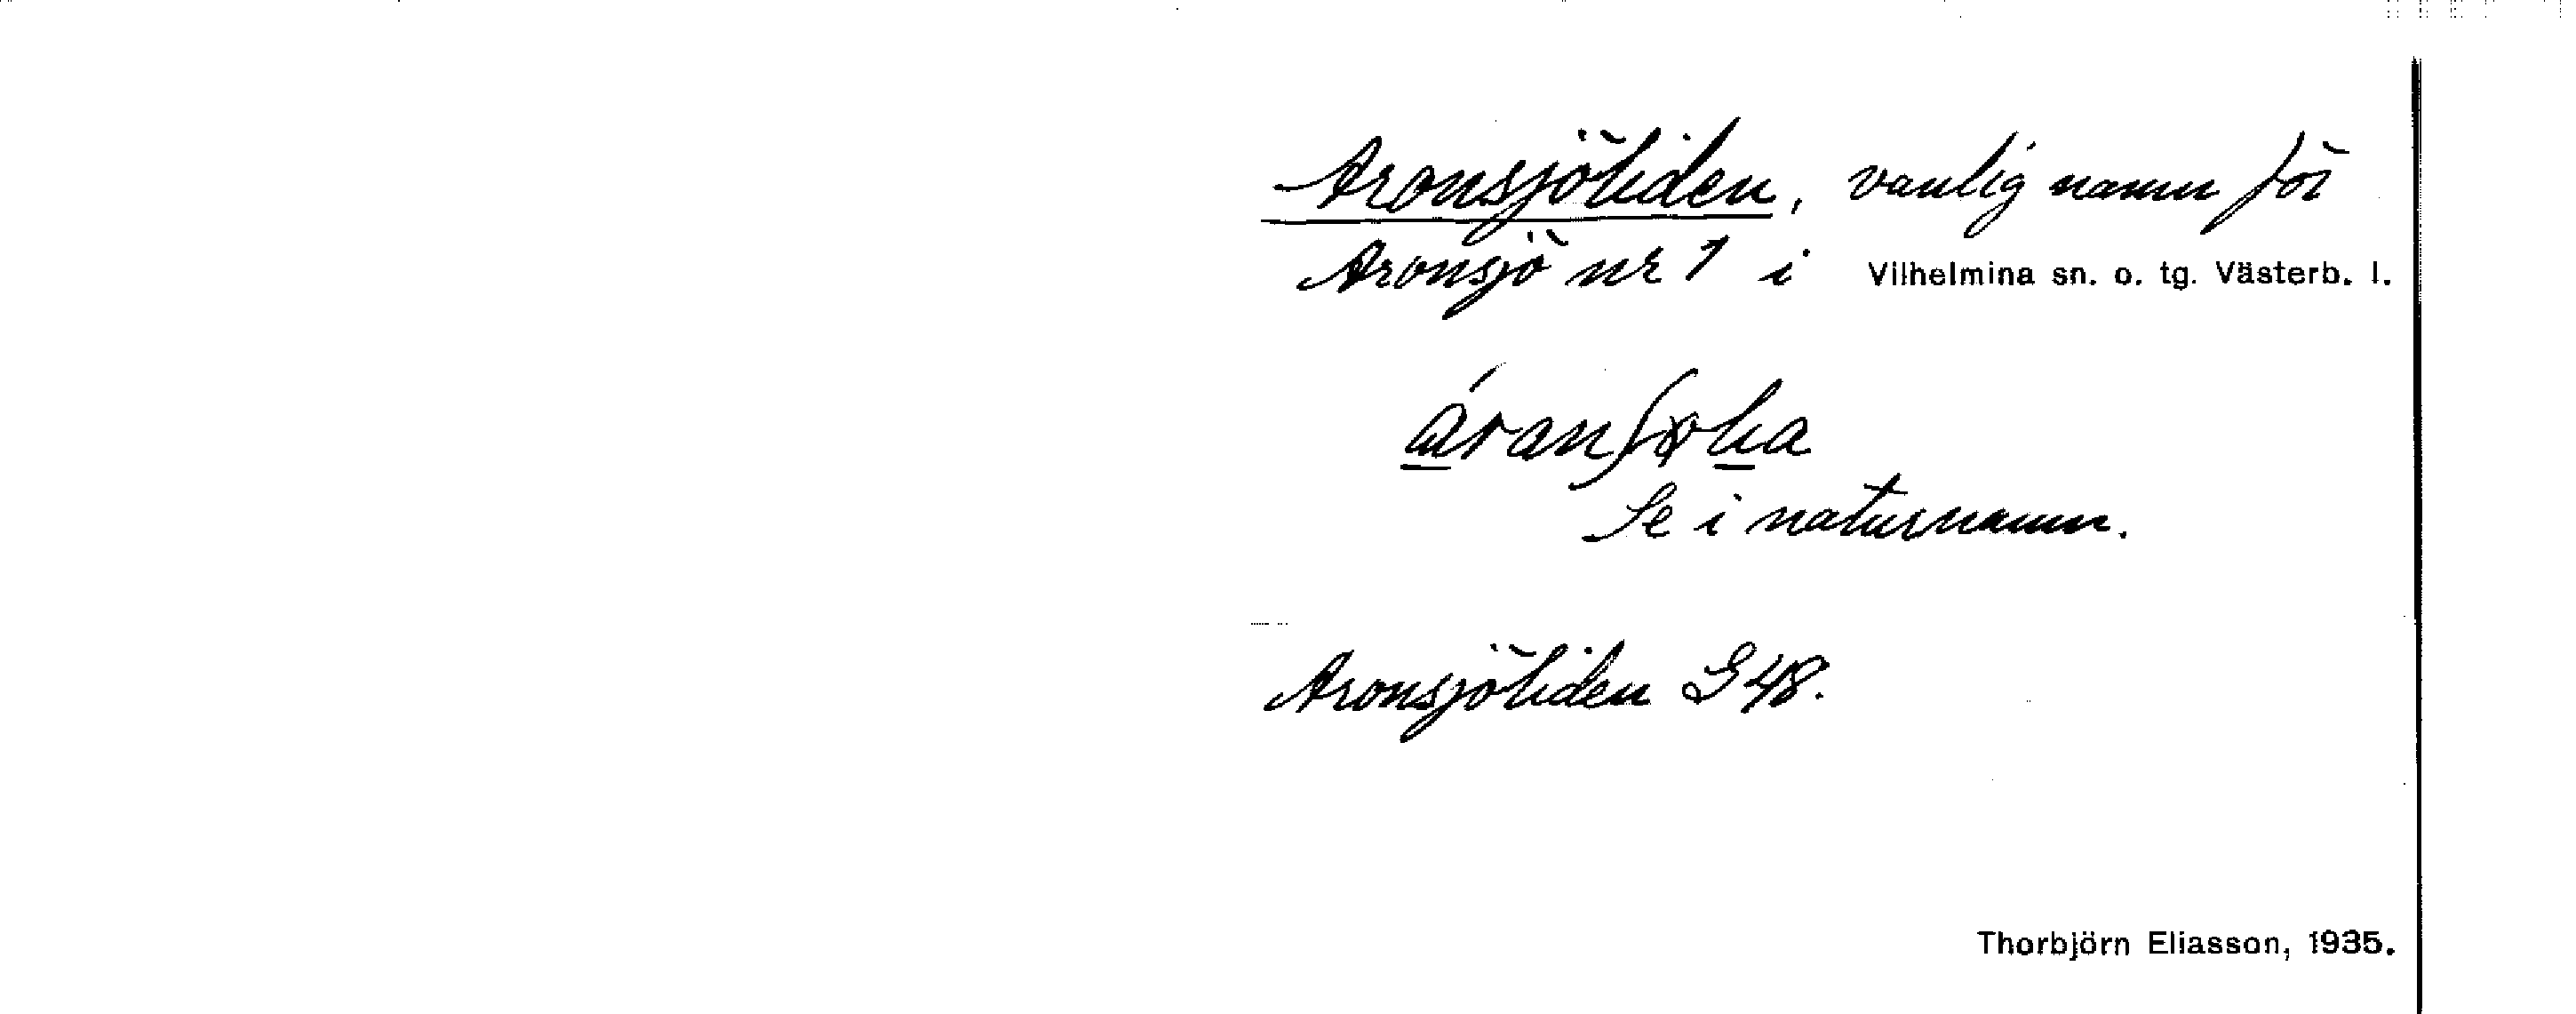 Aronsjöliden, vanlig namn för
Aronsjö nr 1 i Vilhelmina sn. o. tg. Västerb. l.
Se i naturnamn.
Aronsjöliden S 48.
Thorbjörn Eliasson, 1935.